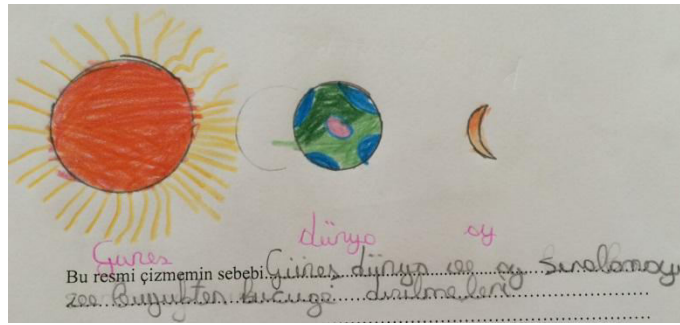 Güneş dünya ay
Bu resmi çizmemin sebebi Güneş dünya ve ay sıralamayı
ve Büyükten küçüğe dizilmeleri